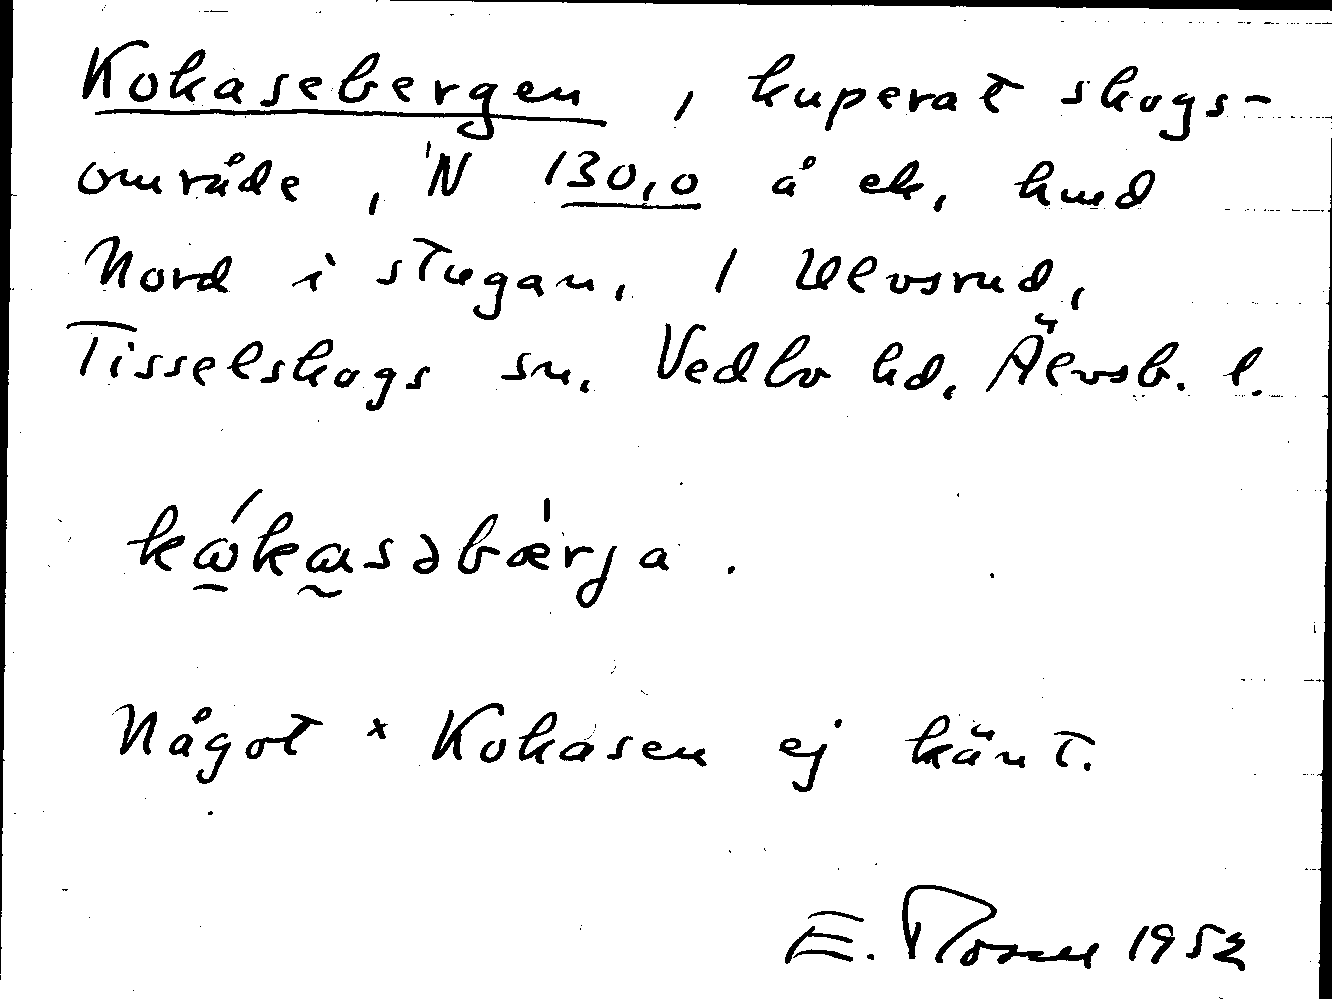 Kokasebergen, kuperat skogs-
område, N 130,0 å ek,
Nord i stugan, 1 Ulvsrud,
Tisselskogs sn. Vedbo hd. Älvsb. l.
kώkasəbæ̀rja.
Något × Kokåsen ej känt.
E. 1952